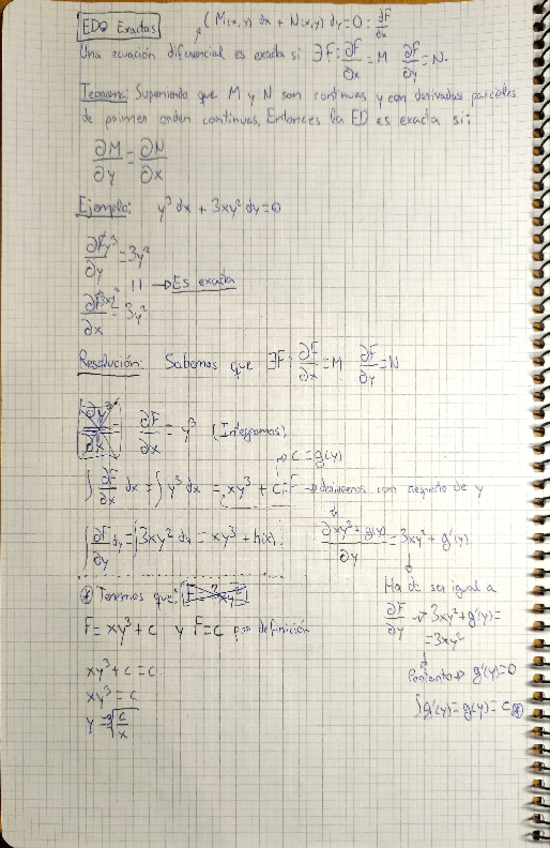 EDO Exactas
(M(x,y) dx + N(x,y) dy = 0 = ∂F/∂x
Una ecuación diferencial es exacta si ∃F: ∂F/∂x = M ∂F/∂y = N.
Teorema: Suponiendo que M y N son continuas y con derivadas parciales
de primer orden continuas. Entonces la ED es exacta si:
∂M/∂y = ∂N/∂x
Ejemplo: y³ dx + 3xy² dy = 0
∂y³/∂y = 3y²
|| → Es exacta
∂3xy²/∂x = 3y²
Resolución: Sabemos que ∃F: ∂F/∂x = M ∂F/∂y = N
∂F/∂x = y³ (Integramos)
→ C = g(y)
∫ ∂F/∂x dx = ∫ y³ dx = xy³ + C = F → derivamos con respecto de y
∫ ∂F/∂y dy = ∫ 3xy² dy = xy³ + h(x)
∂xy³ + g(y)/∂y = 3xy² + g'(y)
Ha de ser igual a
∂F/∂y → 3xy² + g'(y) =
= 3xy²
→ g'(y) = 0
∫g'(y) = g(y) = C ⊛
⊛ Tenemos que:
F = xy³ + c y F = C por definición
xy³ + c = c
xy³ = c
y = ³√(c/x)